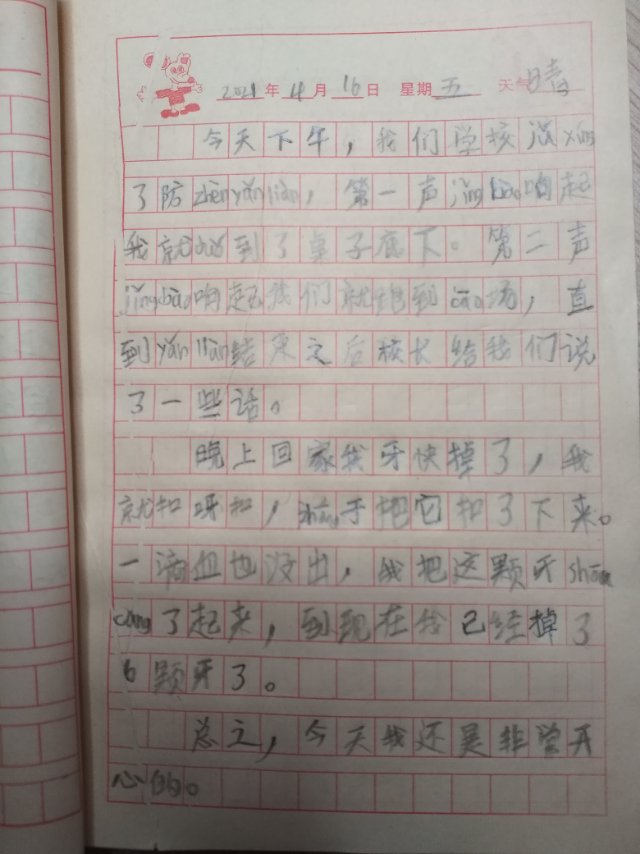 2021年4月16日 星期五 天气晴
今天下午，我们学校 xíng
了防zhèn yǎn liàn，第一声jǐng bào响起
我就 到了桌子底下。第二声
jǐng bào响起我们就跑到cāo场，直
到yǎn liàn结束之后校长给我们说
了一些话。
晚上回家我牙快掉了，我
就扣呀扣，zhōng于把它扣了下来。
一滴血也没出，我把这颗牙shōu
cáng了起来，到现在我已经掉了
6颗牙了。
总之，今天我还是非常开
心的。